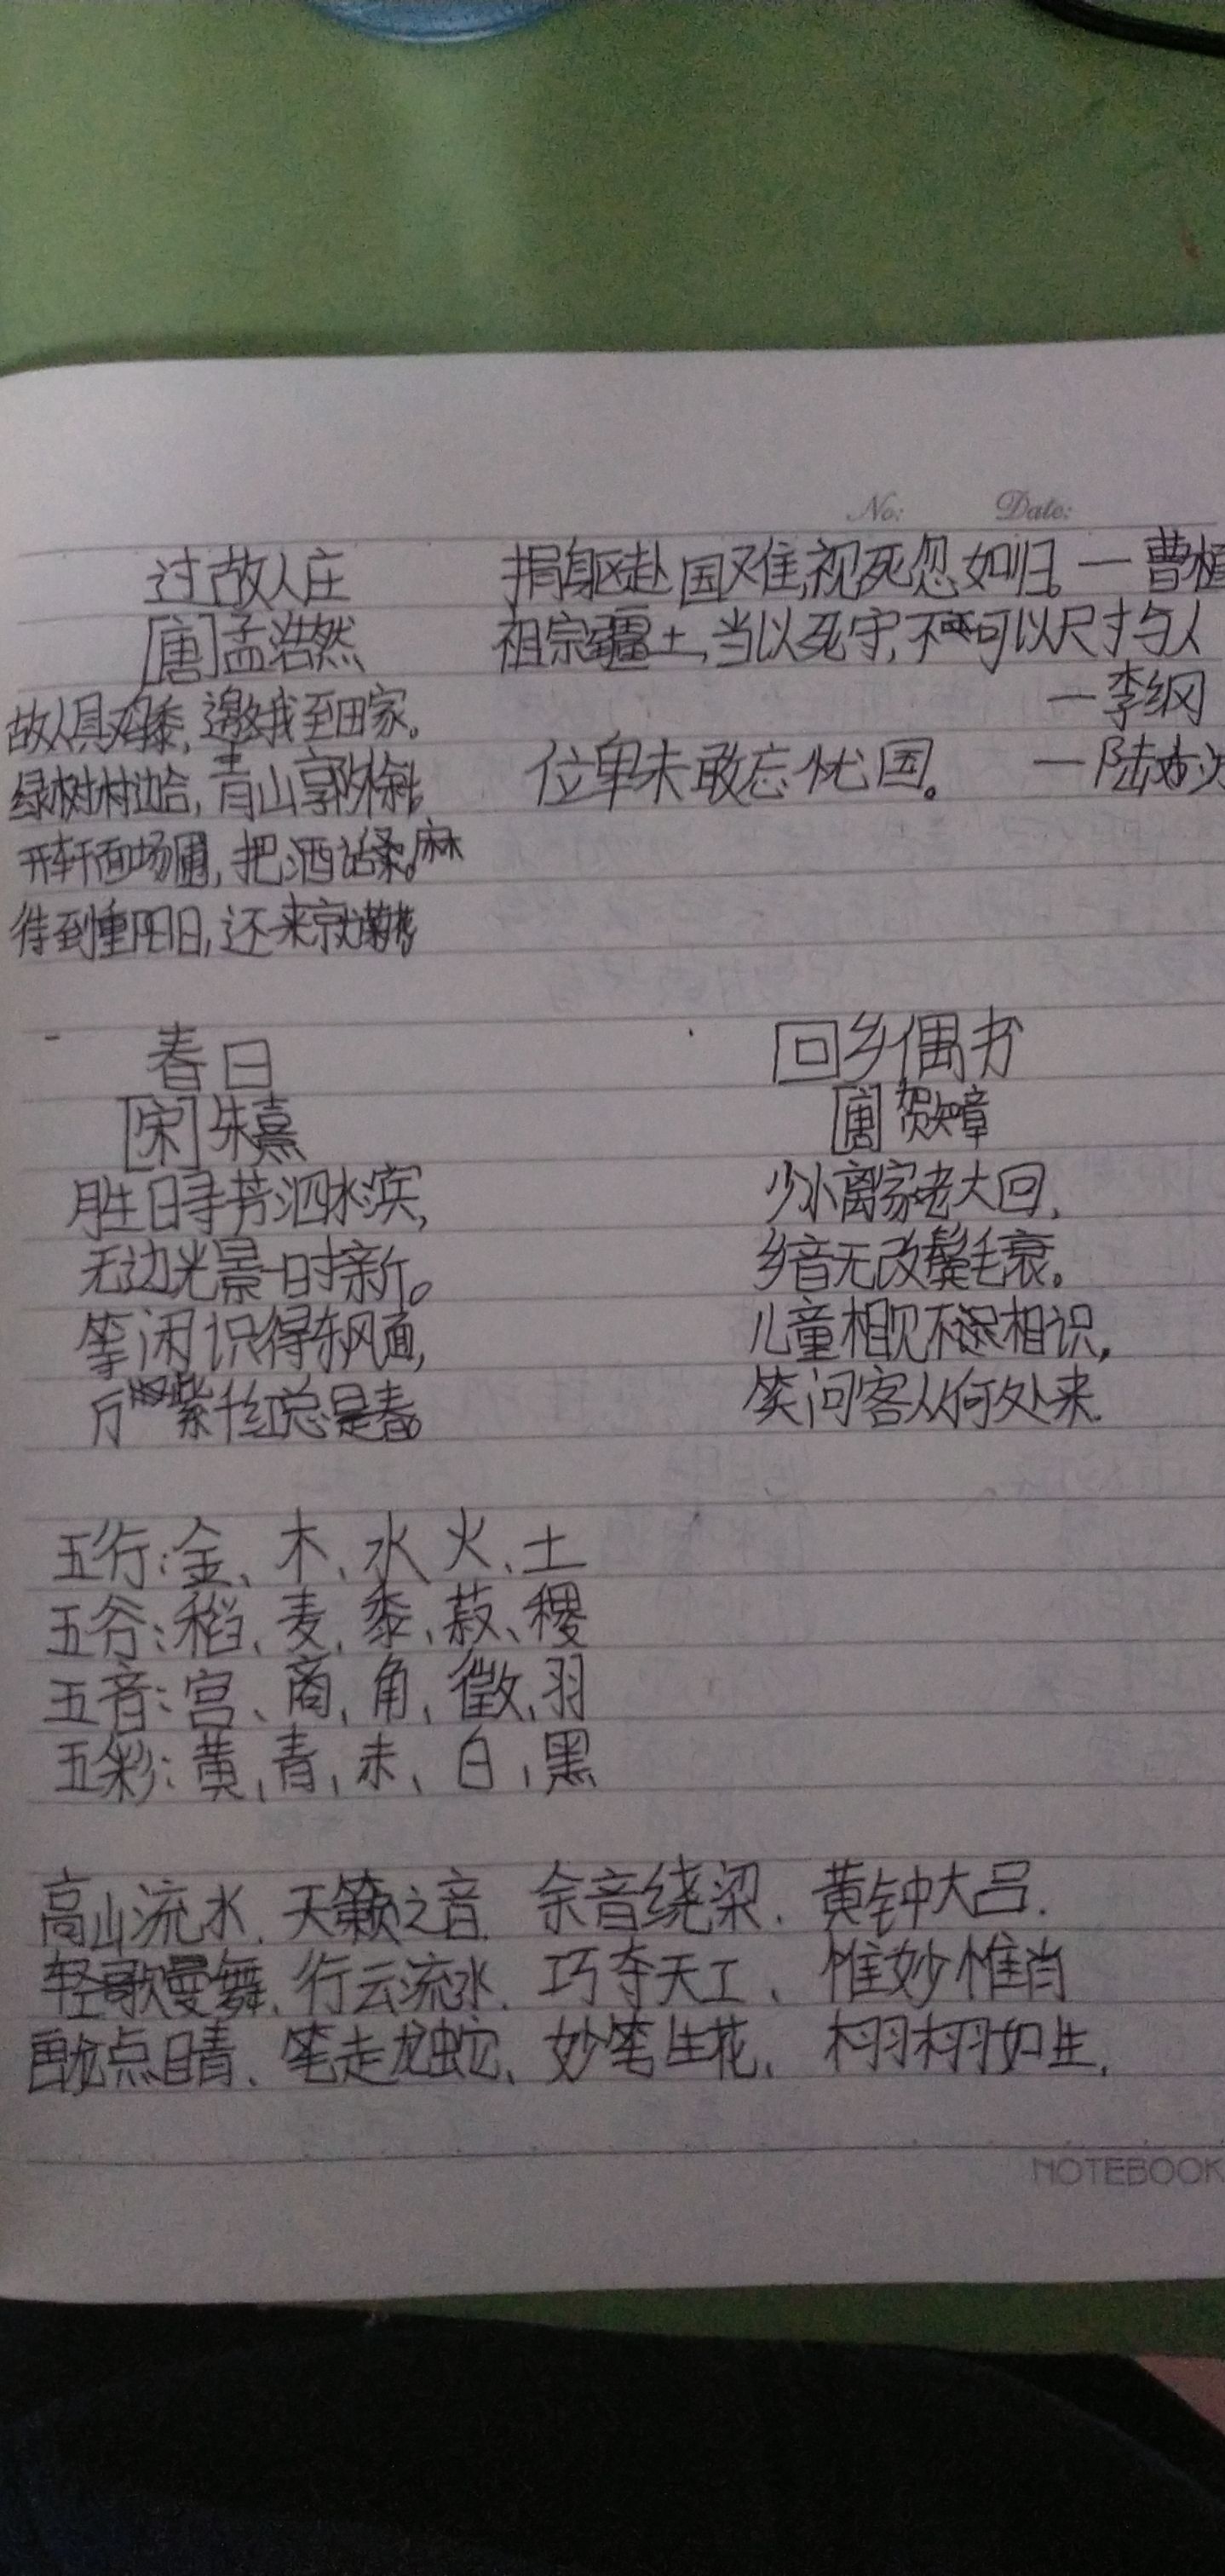 No: Date:
过故人庄
[唐]孟浩然
故人具鸡黍,邀我至田家。
绿树村边合,青山郭外斜
开轩面场圃,把酒话桑麻。
待到重阳日,还来就菊花
捐躯赴国难,视死忽如归。—曹植
祖宗疆土,当以死守,不可以尺寸与人
—李纲
位卑未敢忘忧国。 —陆游
春日
[宋]朱熹
胜日寻芳泗水滨,
无边光景一时新。
等闲识得东风面,
万紫千红总是春。
回乡偶书
[唐]贺知章
少小离家老大回,
乡音无改鬓毛衰。
儿童相见不相识,
笑问客从何处来.
五行:金、木、水、火、土
五谷:稻、麦、黍、菽、稷
五音:宫、商、角、徵、羽
五彩:黄、青、赤、白、黑
高山流水、天籁之音、余音绕梁、黄钟大吕.
轻歌曼舞、行云流水、巧夺天工、惟妙惟肖
画龙点睛、笔走龙蛇、妙笔生花、栩栩如生.
NOTEBOOK